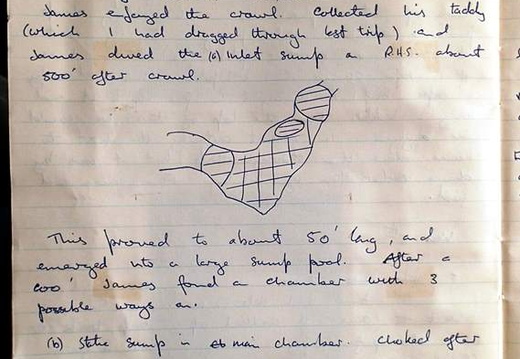 James enjoyed the crawl. Collected his taddy
(which I had dragged through last trip) and
James dived the (a) Inlet sump on R.H.S. about
500' after crawl.
This proved to about 50' long, and
emerged into a large sump pool. After a
James found a chamber with 3
possible ways on.
(b) Static sump in main chamber. choked after